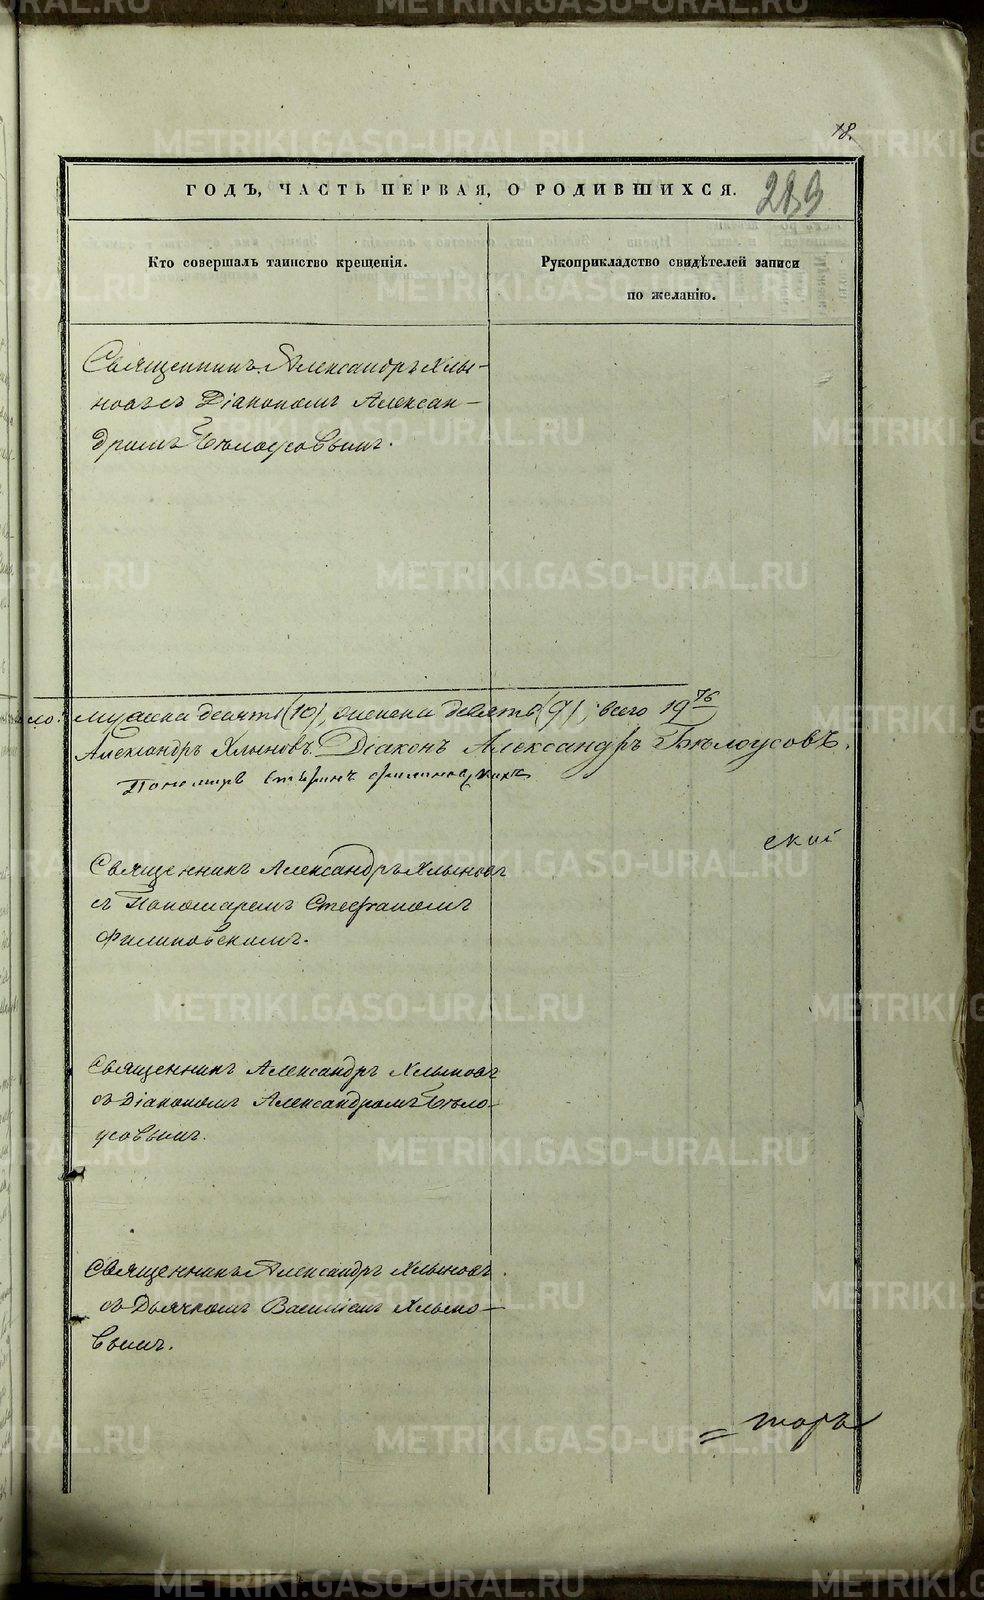 18.
ГОДЪ, ЧАСТЬ ПЕРВАЯ, О РОДИВШИХСЯ.
289
Кто совершалъ таинство крещенія.
Рукоприкладство свидѣтелей записи
по желанію.
Священникъ Александръ Хлы-
новъ съ Діакономъ Алексан-
дромъ Бѣлоусовымъ.
ло: мужеска десять (10), женска девять (9), всего 19
Александръ Хлыновъ. Діаконъ Александръ Бѣлоусовъ.
Пономарь Стефанъ
ский
Священникъ Александръ Хлыновъ
съ Пономаремъ Стефаномъ
Филиповскимъ.
Священникъ Александръ Хлыновъ
съ Діакономъ Александромъ Бѣло-
усовымъ.
Священникъ Александръ Хлыновъ
съ Дьячкомъ Василіемъ Хлыно-
вымъ.
= торъ
METRIKI.GASO-URAL.RU